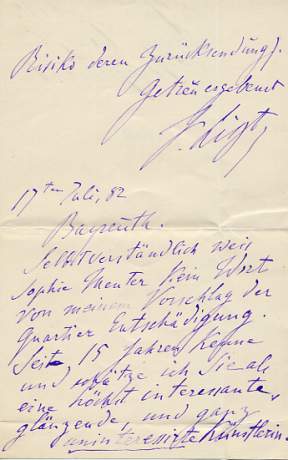 Risiko deren Zurücksendung).
Getreu ergebenst
F. Liszt,
17ten Juli, 82
Bayreuth.
Selbstverständlich weis
Sophie Menter kein Wort
von meinem Vorschlag der
Quartier Entschädigung.
Seit 15 Jahren kenne
und schätze ich Sie als
eine höchst interessante,
glänzende, und ganz
uninteressirte Künstlerin.